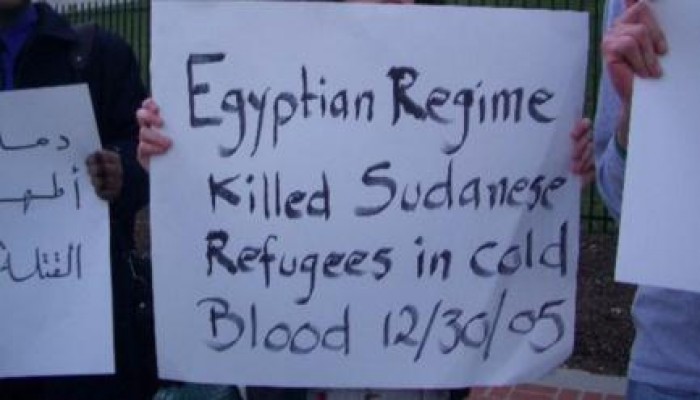 Egyptian Regime
Killed Sudanese
Refugees in cold
Blood 12/30/05
القتلة